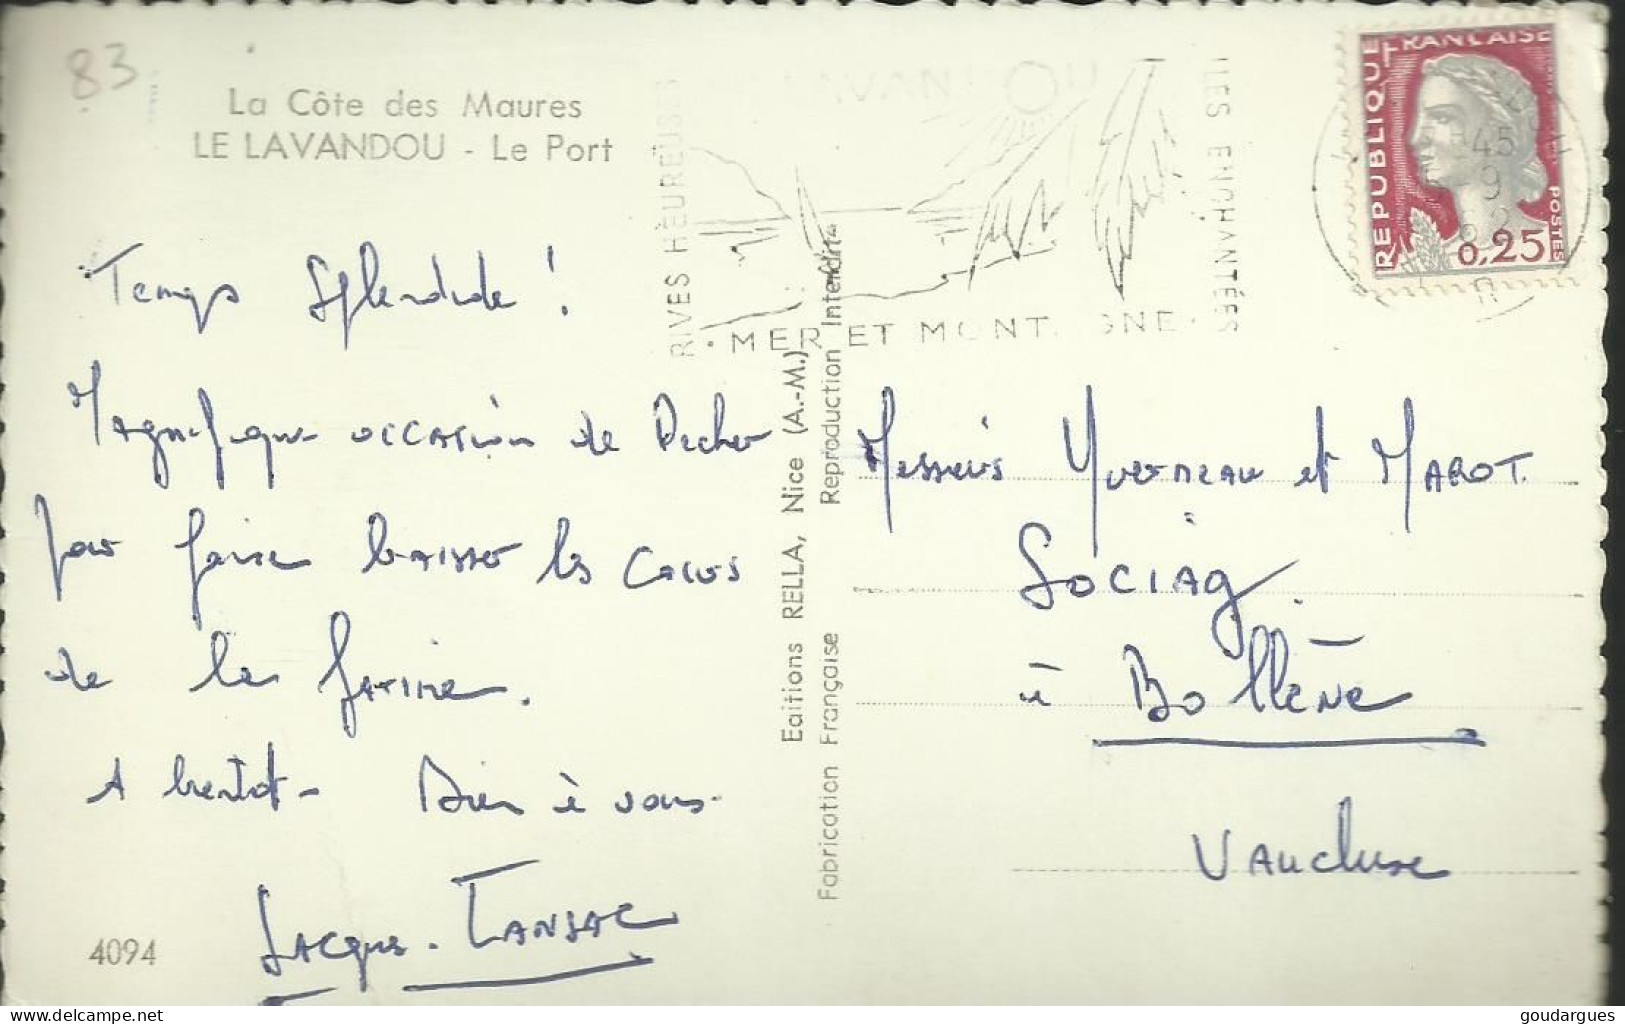 83
La Côte des Maures
LE LAVANDOU - Le Port
RIVES HEUREUSES
ILES ENCHANTÉES
MER ET MONT
REPUBLIQUE FRANCAISE
POSTES
0,25
45
9
62
Temps splendide !
Magnifique occasion de Pêcher
pour faire baisser les cours
de la farine.
A bientôt - Bien à vous.
Jacques. TANSAC
4094
Editions RELLA, Nice (A.-M.)
Fabrication Française
Reproduction Interdite
Messieurs Yverneau et MAROT.
SOCIAG.
à Bollène
Vaucluse
delcampe.net
goudargues